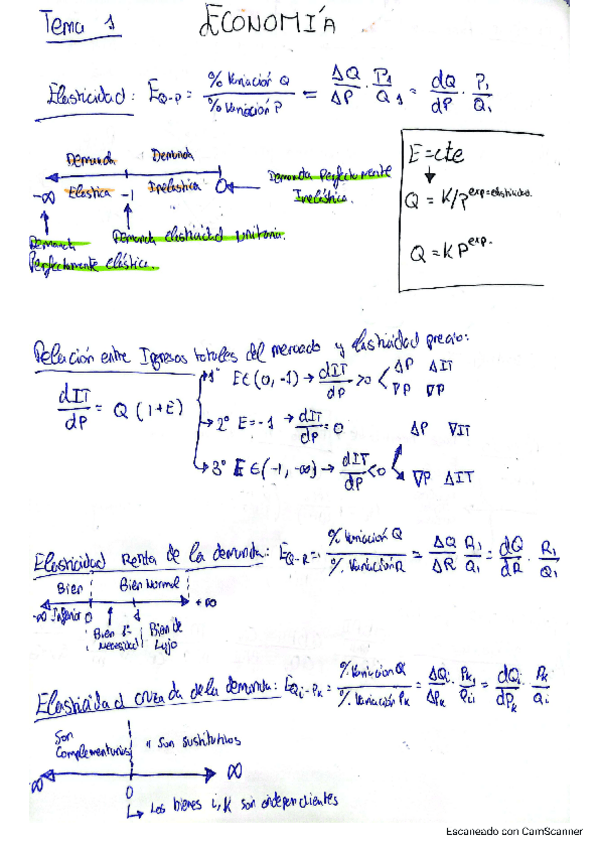 Tema 1 ECONOMÍA
Elasticidad: E_Q-P = % Variación Q / % Variación P = ΔQ/ΔP · P₁/Q₁ = dQ/dP · P₁/Q₁
Demanda Demanda
-∞ Elástica -1 Inelástica 0 ← Demanda Perfectamente Inelástica.
Demanda Perfectamente elástica.
Demanda elasticidad unitaria.
E = cte
↓
Q = K/P^exp=elasticidad
Q = K P^exp.
Relación entre Ingresos totales del mercado y elasticidad precio:
dIT/dP = Q (1+E)
1º E∈(0,-1) → dIT/dP > 0 < ΔP ΔIT
∇P ∇P
2º E=-1 → dIT/dP = 0
3º E∈(-1,-∞) → dIT/dP < 0 < ΔP ∇IT
∇P ΔIT
Elasticidad Renta de la demanda: E_Q-R = % Variación Q / % Variación R = ΔQ/ΔR · R₁/Q₁ = dQ/dR · R₁/Q₁
Bien Bien Normal
-∞ Inferior 0 1 +∞
Bien 1ª necesidad Bien de Lujo
Elasticidad cruzada de la demanda: E_Qi-Pk = % Variacion Q / % Variación Pk = ΔQi/ΔPk · Pk₁/Qi₁ = dQi/dPk · Pk/Qi
Son Complementarios Son sustitutivos
-∞ 0 ∞
↳ Los bienes i, K son independientes
Escaneado con CamScanner